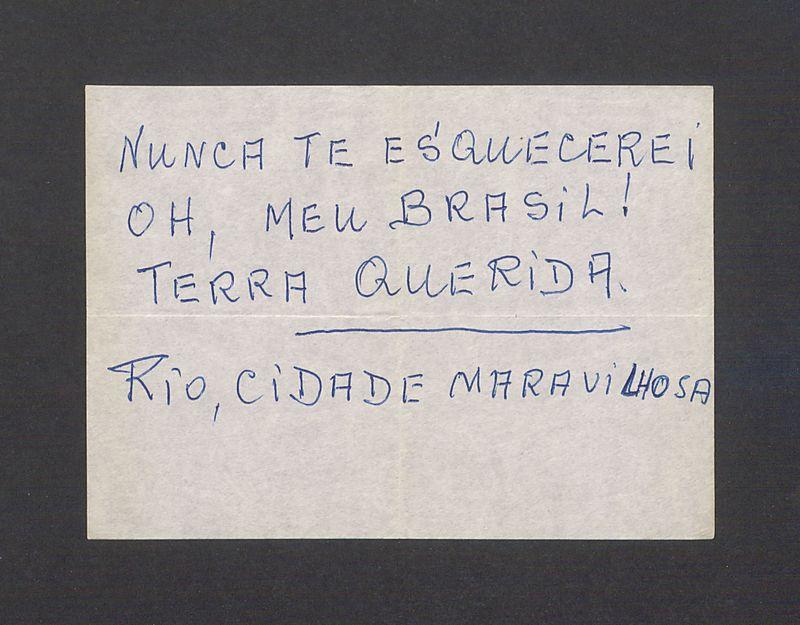 NUNCA TE ESQUECEREI
OH, MEU BRASIL!
TERRA QUERIDA.
RIO, CIDADE MARAVILHOSA